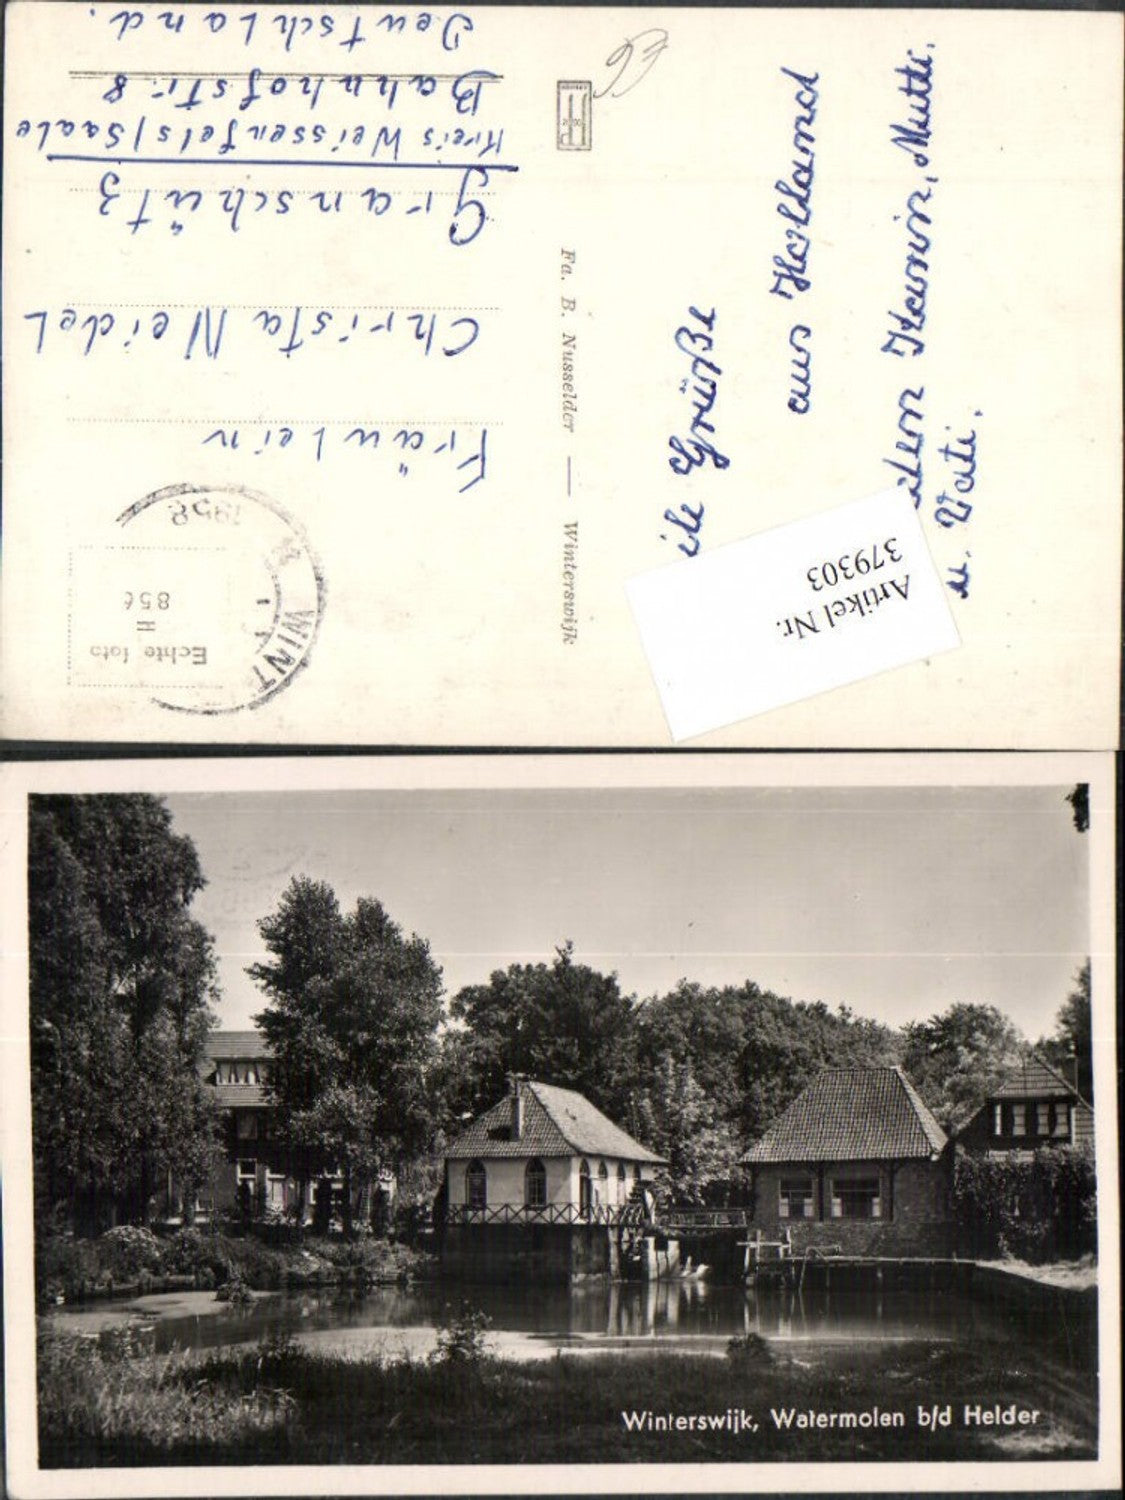 ile Grüße
aus Holland
Karin, Mutti
u. Vati.
Artikel Nr.
379303
Fa. B. Nusselder — Winterswijk
Echte foto
WINT
1958
Fräulein
Christa Neidel
Granschütz
Kreis Weissenfels/Saale
Bahnhofstr. 8
Deutschland.
Winterswijk, Watermolen b/d Helder